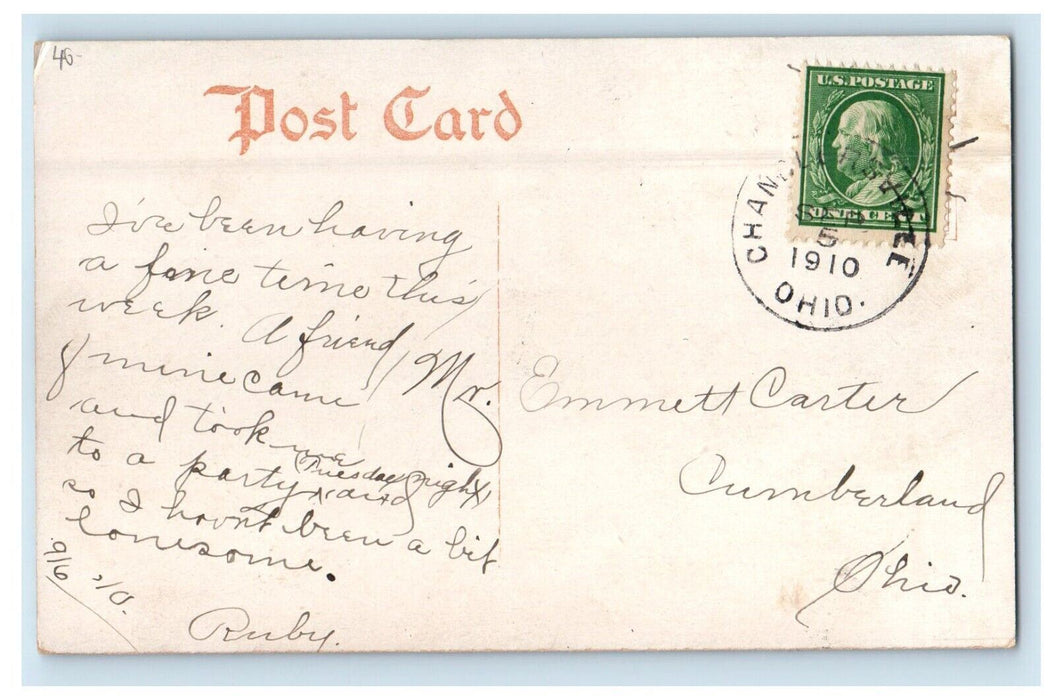 40-
Post Card
U.S. POSTAGE
CHANDLERSVILLE
SEP
5
1910
OHIO.
I've been having
a fine time this
week. A friend
of mine came
and took me
to a party (Tuesday night)
and
so I havn't been a bit
lonesome.
Ruby.
Mr. Emmett Carter
Cumberland
Ohio.